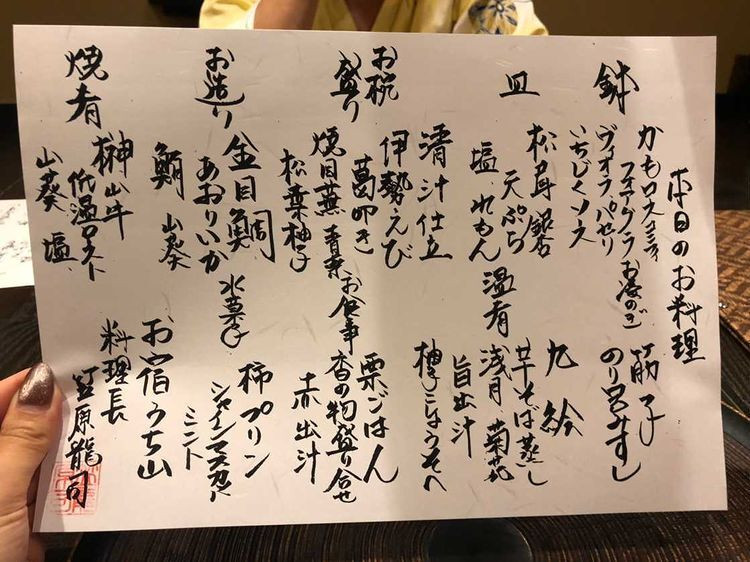 本日のお料理
鉢
かもロース
フォアグラ
ヴィオラ パセリ
いちじくソース
皿
松茸 銀杏
天ぷら
塩 れもん
お椀
清汁仕立
伊勢えび
葛叩き
盛り
焼目蕪 青菜
松葉柚子
お造り
金目鯛
あおりいか
鮪 山葵
焼肴
榊山牛
低温ロースト
山葵 塩
お凌のぎ
筋子
温肴
九絵
芋そば蒸し
浅月 菊花
旨出汁
柚子こしょうそへ
お食事
栗ごはん
香の物盛り合せ
赤出汁
水菓子
柿プリン
シャインマスカット
ミント
お宿うち山
料理長
笠原龍司